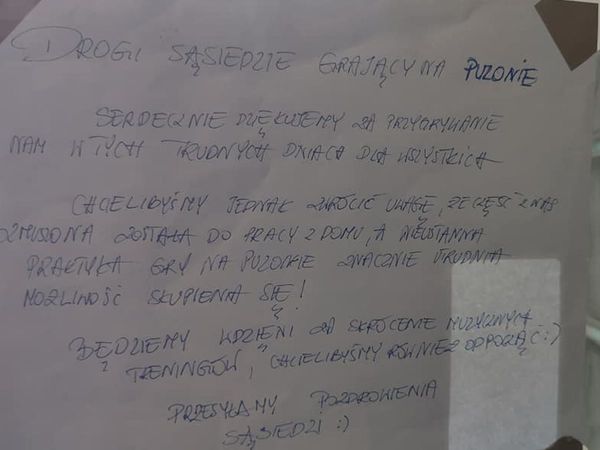 DROGI SĄSIEDZIE GRAJĄCY NA PUZONIE
SERDECZNIE DZIĘKUJEMY ZA PRZYGRYWANIE
NAM W TYCH TRUDNYCH DNIACH DLA WSZYSTKICH
CHCIELIBYŚMY JEDNAK ZWRÓCIĆ UWAGĘ, ŻE CZĘŚĆ Z NAS
ZMUSZONA ZOSTAŁA DO PRACY Z DOMU, A NIEUSTANNA
PRAKTYKA GRY NA PUZONIE ZNACZNIE UTRUDNIA
MOŻLIWOŚĆ SKUPIENIA SIĘ!
BĘDZIEMY WDZIĘCZNI ZA SKRÓCENIE MUZYCZNYCH
TRENINGÓW, CHCIELIBYŚMY RÓWNIEŻ ODPOCZĄĆ :)
PRZESYŁAMY POZDROWIENIA
SĄSIEDZI :)